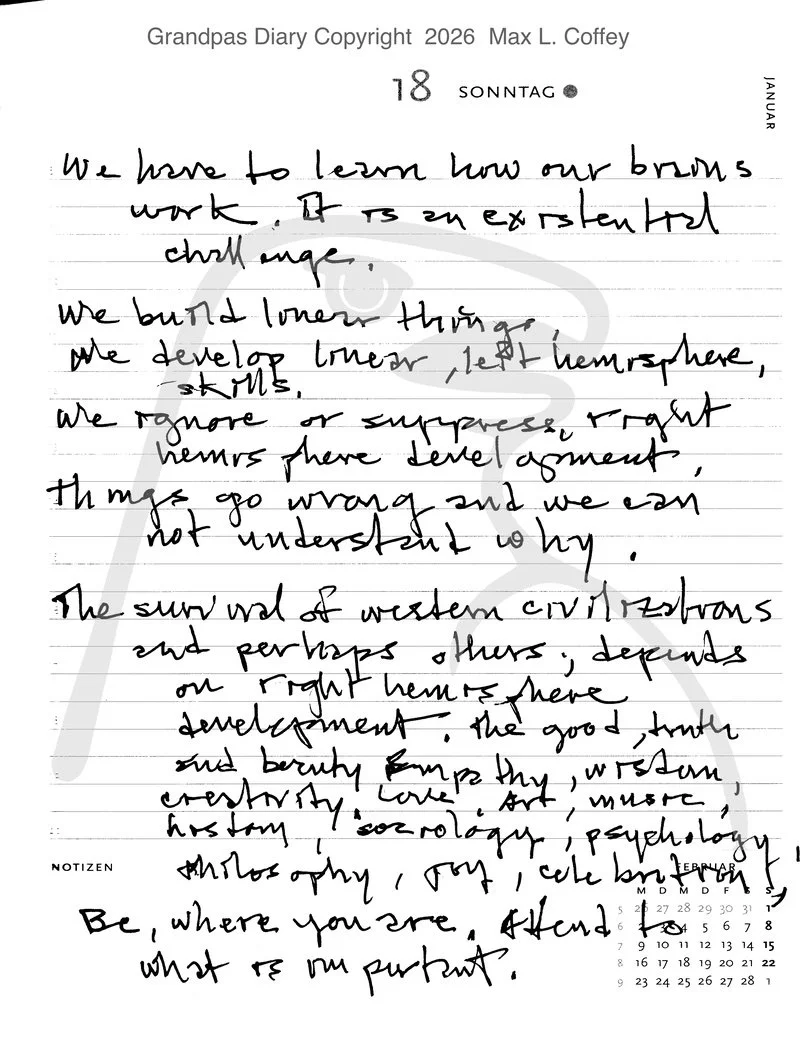 Grandpas Diary Copyright 2026 Max L. Coffey
18 SONNTAG
JANUAR
We have to learn how our brains
work. It is an existential
challenge.
We build linear things,
We develop linear, left hemisphere,
skills.
We ignore or suppress, right
hemisphere development,
things go wrong and we can
not understand why.
The survival of western civilizations
and perhaps others, depends
on right hemisphere
development. The good, truth
and beauty Empathy, wisdom,
creativity, Love, Art, music,
history, sociology, psychology
philosophy, joy, celebration,
Be, where you are. Attend to
what is important.
NOTIZEN
FEBRUAR
M D M D F S S
5 26 27 28 29 30 31 1
6 2 3 4 5 6 7 8
7 9 10 11 12 13 14 15
8 16 17 18 19 20 21 22
9 23 24 25 26 27 28 1